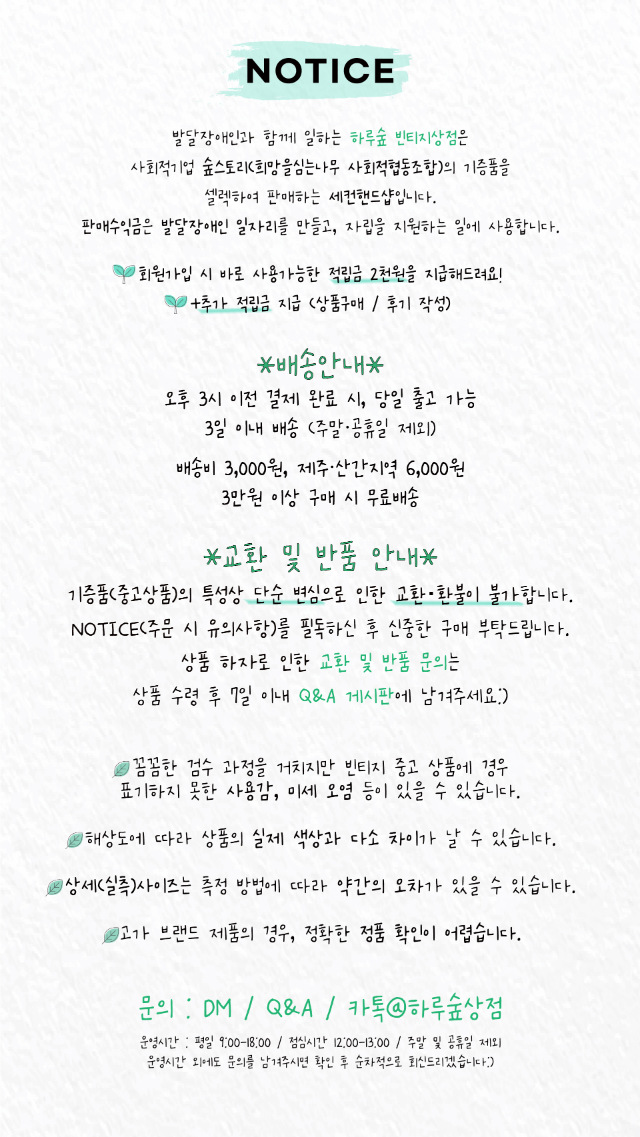 NOTICE
발달장애인과 함께 일하는 하루숲 빈티지상점은
사회적기업 숲스토리(희망을심는나무 사회적협동조합)의 기증품을
셀렉하여 판매하는 세컨핸드샵입니다.
판매수익금은 발달장애인 일자리를 만들고, 자립을 지원하는 일에 사용합니다.
회원가입 시 바로 사용가능한 적립금 2천원을 지급해드려요!
+추가 적립금 지급 (상품구매 / 후기 작성)
*배송안내*
오후 3시 이전 결제 완료 시, 당일 출고 가능
3일 이내 배송 (주말·공휴일 제외)
배송비 3,000원, 제주·산간지역 6,000원
3만원 이상 구매 시 무료배송
*교환 및 반품 안내*
기증품(중고상품)의 특성상 단순 변심으로 인한 교환·환불이 불가합니다.
NOTICE(주문 시 유의사항)를 필독하신 후 신중한 구매 부탁드립니다.
상품 하자로 인한 교환 및 반품 문의는
상품 수령 후 7일 이내 Q&A 게시판에 남겨주세요:)
꼼꼼한 검수 과정을 거치지만 빈티지 중고 상품에 경우
표기하지 못한 사용감, 미세 오염 등이 있을 수 있습니다.
해상도에 따라 상품의 실제 색상과 다소 차이가 날 수 있습니다.
상세(실측)사이즈는 측정 방법에 따라 약간의 오차가 있을 수 있습니다.
고가 브랜드 제품의 경우, 정확한 정품 확인이 어렵습니다.
문의 : DM / Q&A / 카톡@하루숲상점
운영시간 : 평일 9:00-18:00 / 점심시간 12:00-13:00 / 주말 및 공휴일 제외
운영시간 외에도 문의를 남겨주시면 확인 후 순차적으로 회신드리겠습니다:)